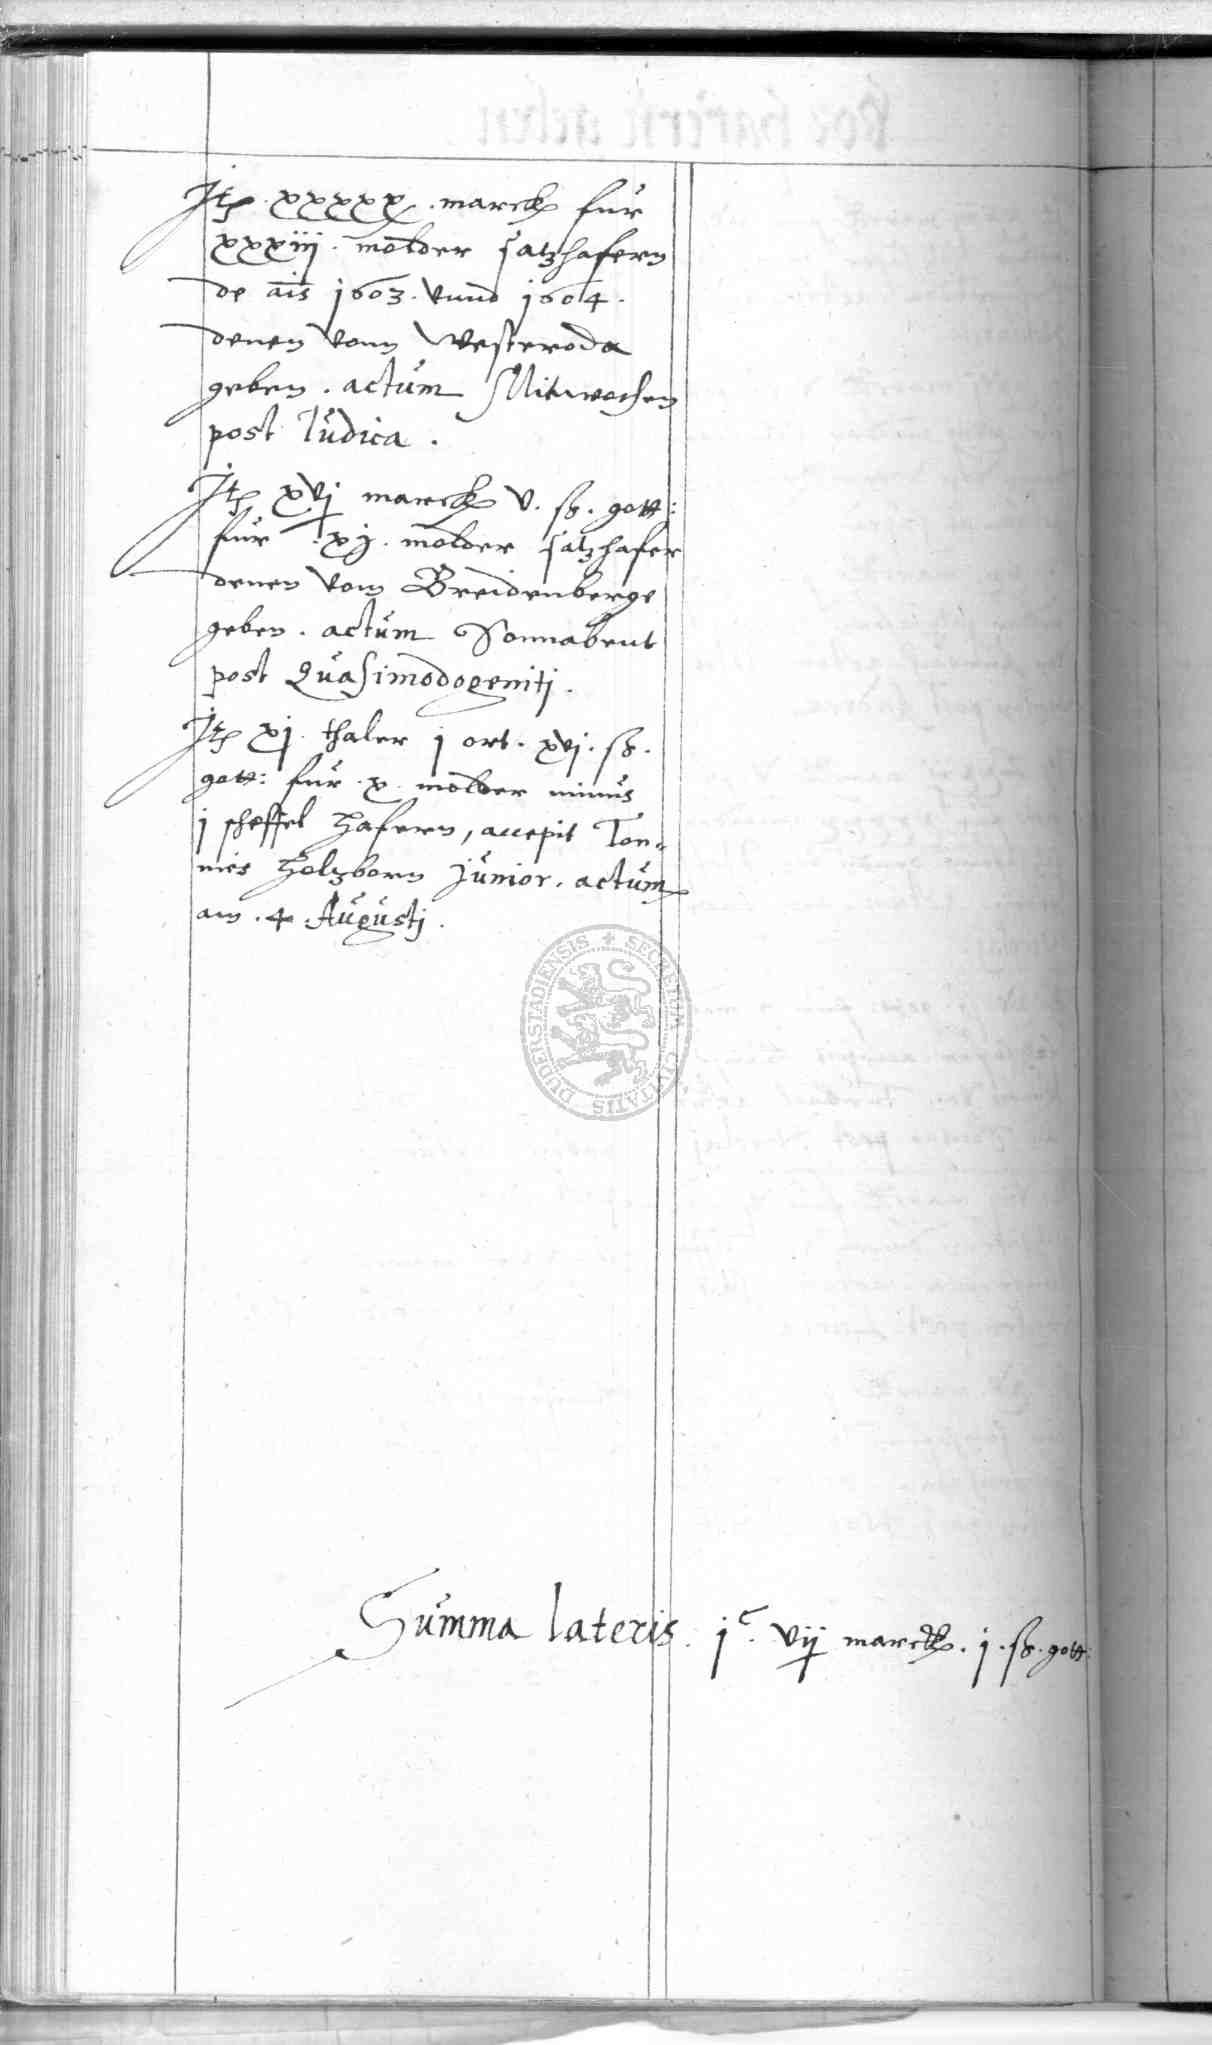 Jt xxxxx. marck für
xxxiij. molder satzhafern
de ais 1603. vnnd 1604.
denen vonn Westeroda
geben. actum Mitwochen
post Judica.
Jt xvj marck v. ß. gott:
für xj. molder satzhafer
denen vom Breidenberge
geben. actum Sonnabent
post Quasimodogeniti.
Jt xj. thaler j ort. xvj. ß.
gott: für. x. molder minus
j scheffel hafern, accepit Ton=
nies Holtzborn junior. actum
am. 4. Augusti.
SECRETUM CIVITATIS DUDERSTADIENSIS
Summa lateris. jc. vij marck. j. ß. gott: